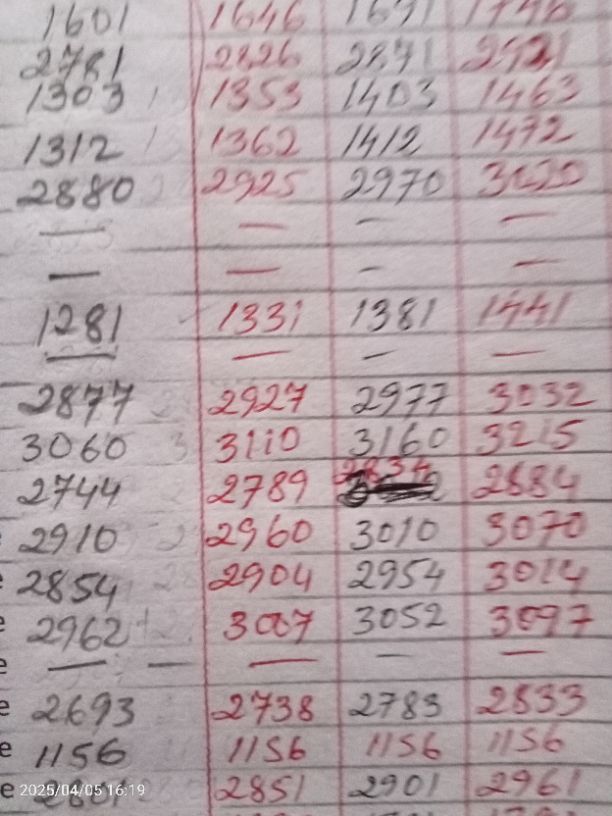 1601 1646 1691
2781 2826 2871 2921
1303 1353 1403 1463
1312 1362 1412 1472
2880 2925 2970 3020
— — — —
— — — —
1281 1331 1381 1441
— — — —
2877 2927 2977 3032
3060 3110 3160 3215
2744 2789 2834 2884
2910 2960 3010 3070
2854 2904 2954 3014
2962 3007 3052 3097
— — — — —
2693 2738 2783 2833
e 1156 1156 1156 1156
e 2801 2851 2901 2961
2025/04/05 16:19